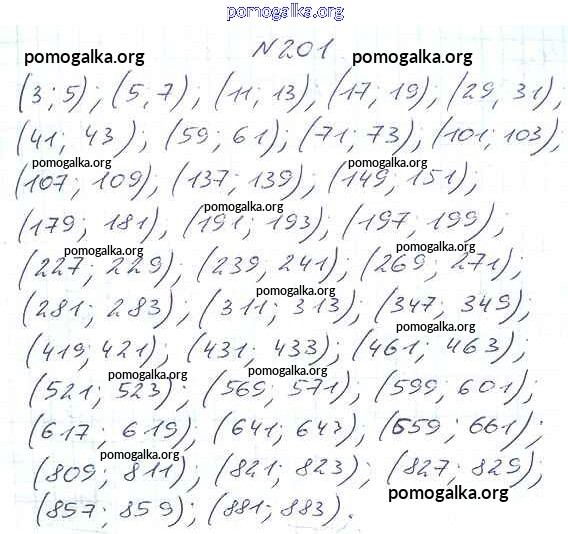 pomogalka.org
N 201
pomogalka.org pomogalka.org
(3; 5); (5; 7); (11; 13); (17; 19); (29; 31);
(41; 43); (59; 61); (71; 73); (101; 103);
pomogalka.org pomogalka.org
(107; 109); (137; 139); (149; 151);
pomogalka.org
(179; 181), (191; 193); (197; 199);
pomogalka.org pomogalka.org
(227; 229); (239; 241); (269; 271);
pomogalka.org
(281; 283); (311; 313); (347; 349);
pomogalka.org
(419; 421); (431; 433); (461; 463);
pomogalka.org pomogalka.org
(521; 523); (569; 571); (599; 601);
(617; 619); (641; 643); (659; 661);
pomogalka.org
(809; 811); (821; 823); (827; 829);
pomogalka.org
(857; 859); (881; 883).